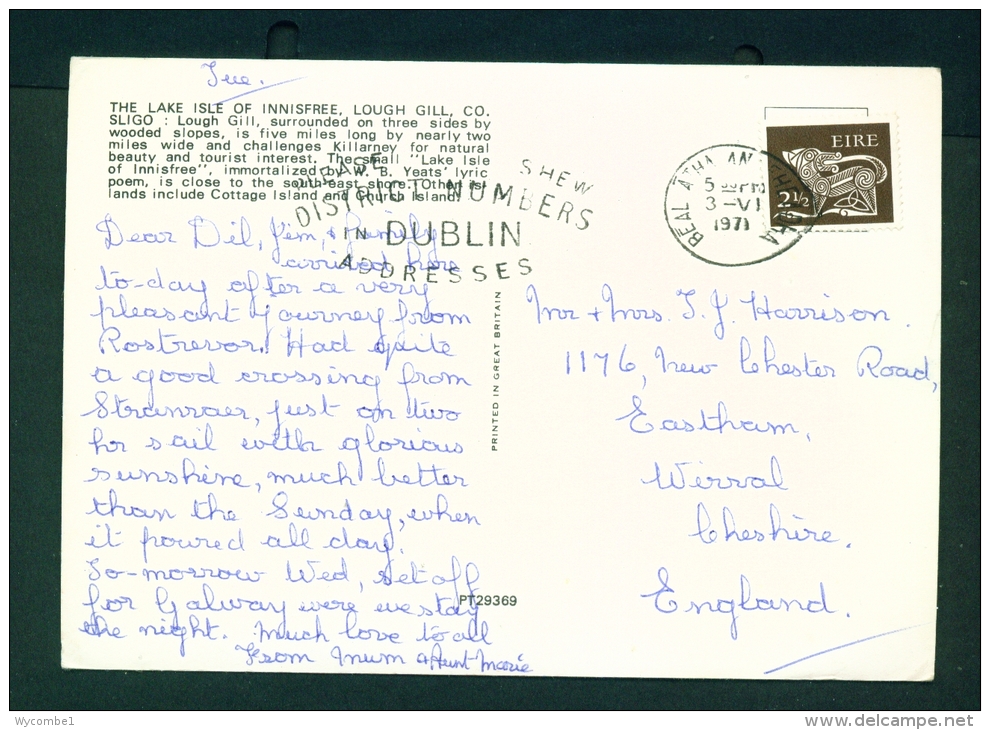 Tue.
THE LAKE ISLE OF INNISFREE, LOUGH GILL, CO.
SLIGO : Lough Gill, surrounded on three sides by
wooded slopes, is five miles long by nearly two
miles wide and challenges Killarney for natural
beauty and tourist interest. The small "Lake Isle
of Innisfree", immortalized by W. B. Yeats' lyric
poem, is close to the south-east shore. Other is-
lands include Cottage Island and Church Island.
PLEASE SHEW
DISTRICT NUMBERS
IN DUBLIN
ADDRESSES
BÉAL ÁTHA AN
5 PM
3-VI
1971
EIRE
2½
Dear Dil, Jim, & family
arrived here
to-day after a very
pleasant journey from
Rostrevor. Had quite
a good crossing from
Stranraer, just on two
hr sail with glorious
sunshine, much better
than the Sunday, when
it poured all day.
To-morrow Wed, set off
for Galway were we stay
the night. Much love to all
From Mum & Aunt Marie
PRINTED IN GREAT BRITAIN
PT29369
Mr + Mrs. T. J. Harrison.
1176, New Chester Road,
Eastham,
Wirral
Cheshire.
England.
Wycombe1
www.delcampe.net